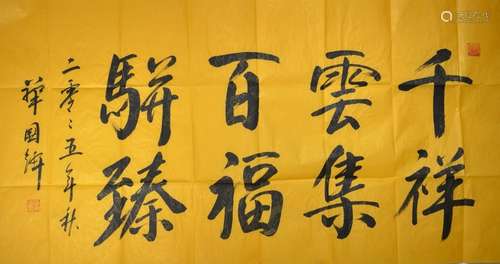 千祥
雲集
百福
駢臻
二零零五年秋
華國鋒